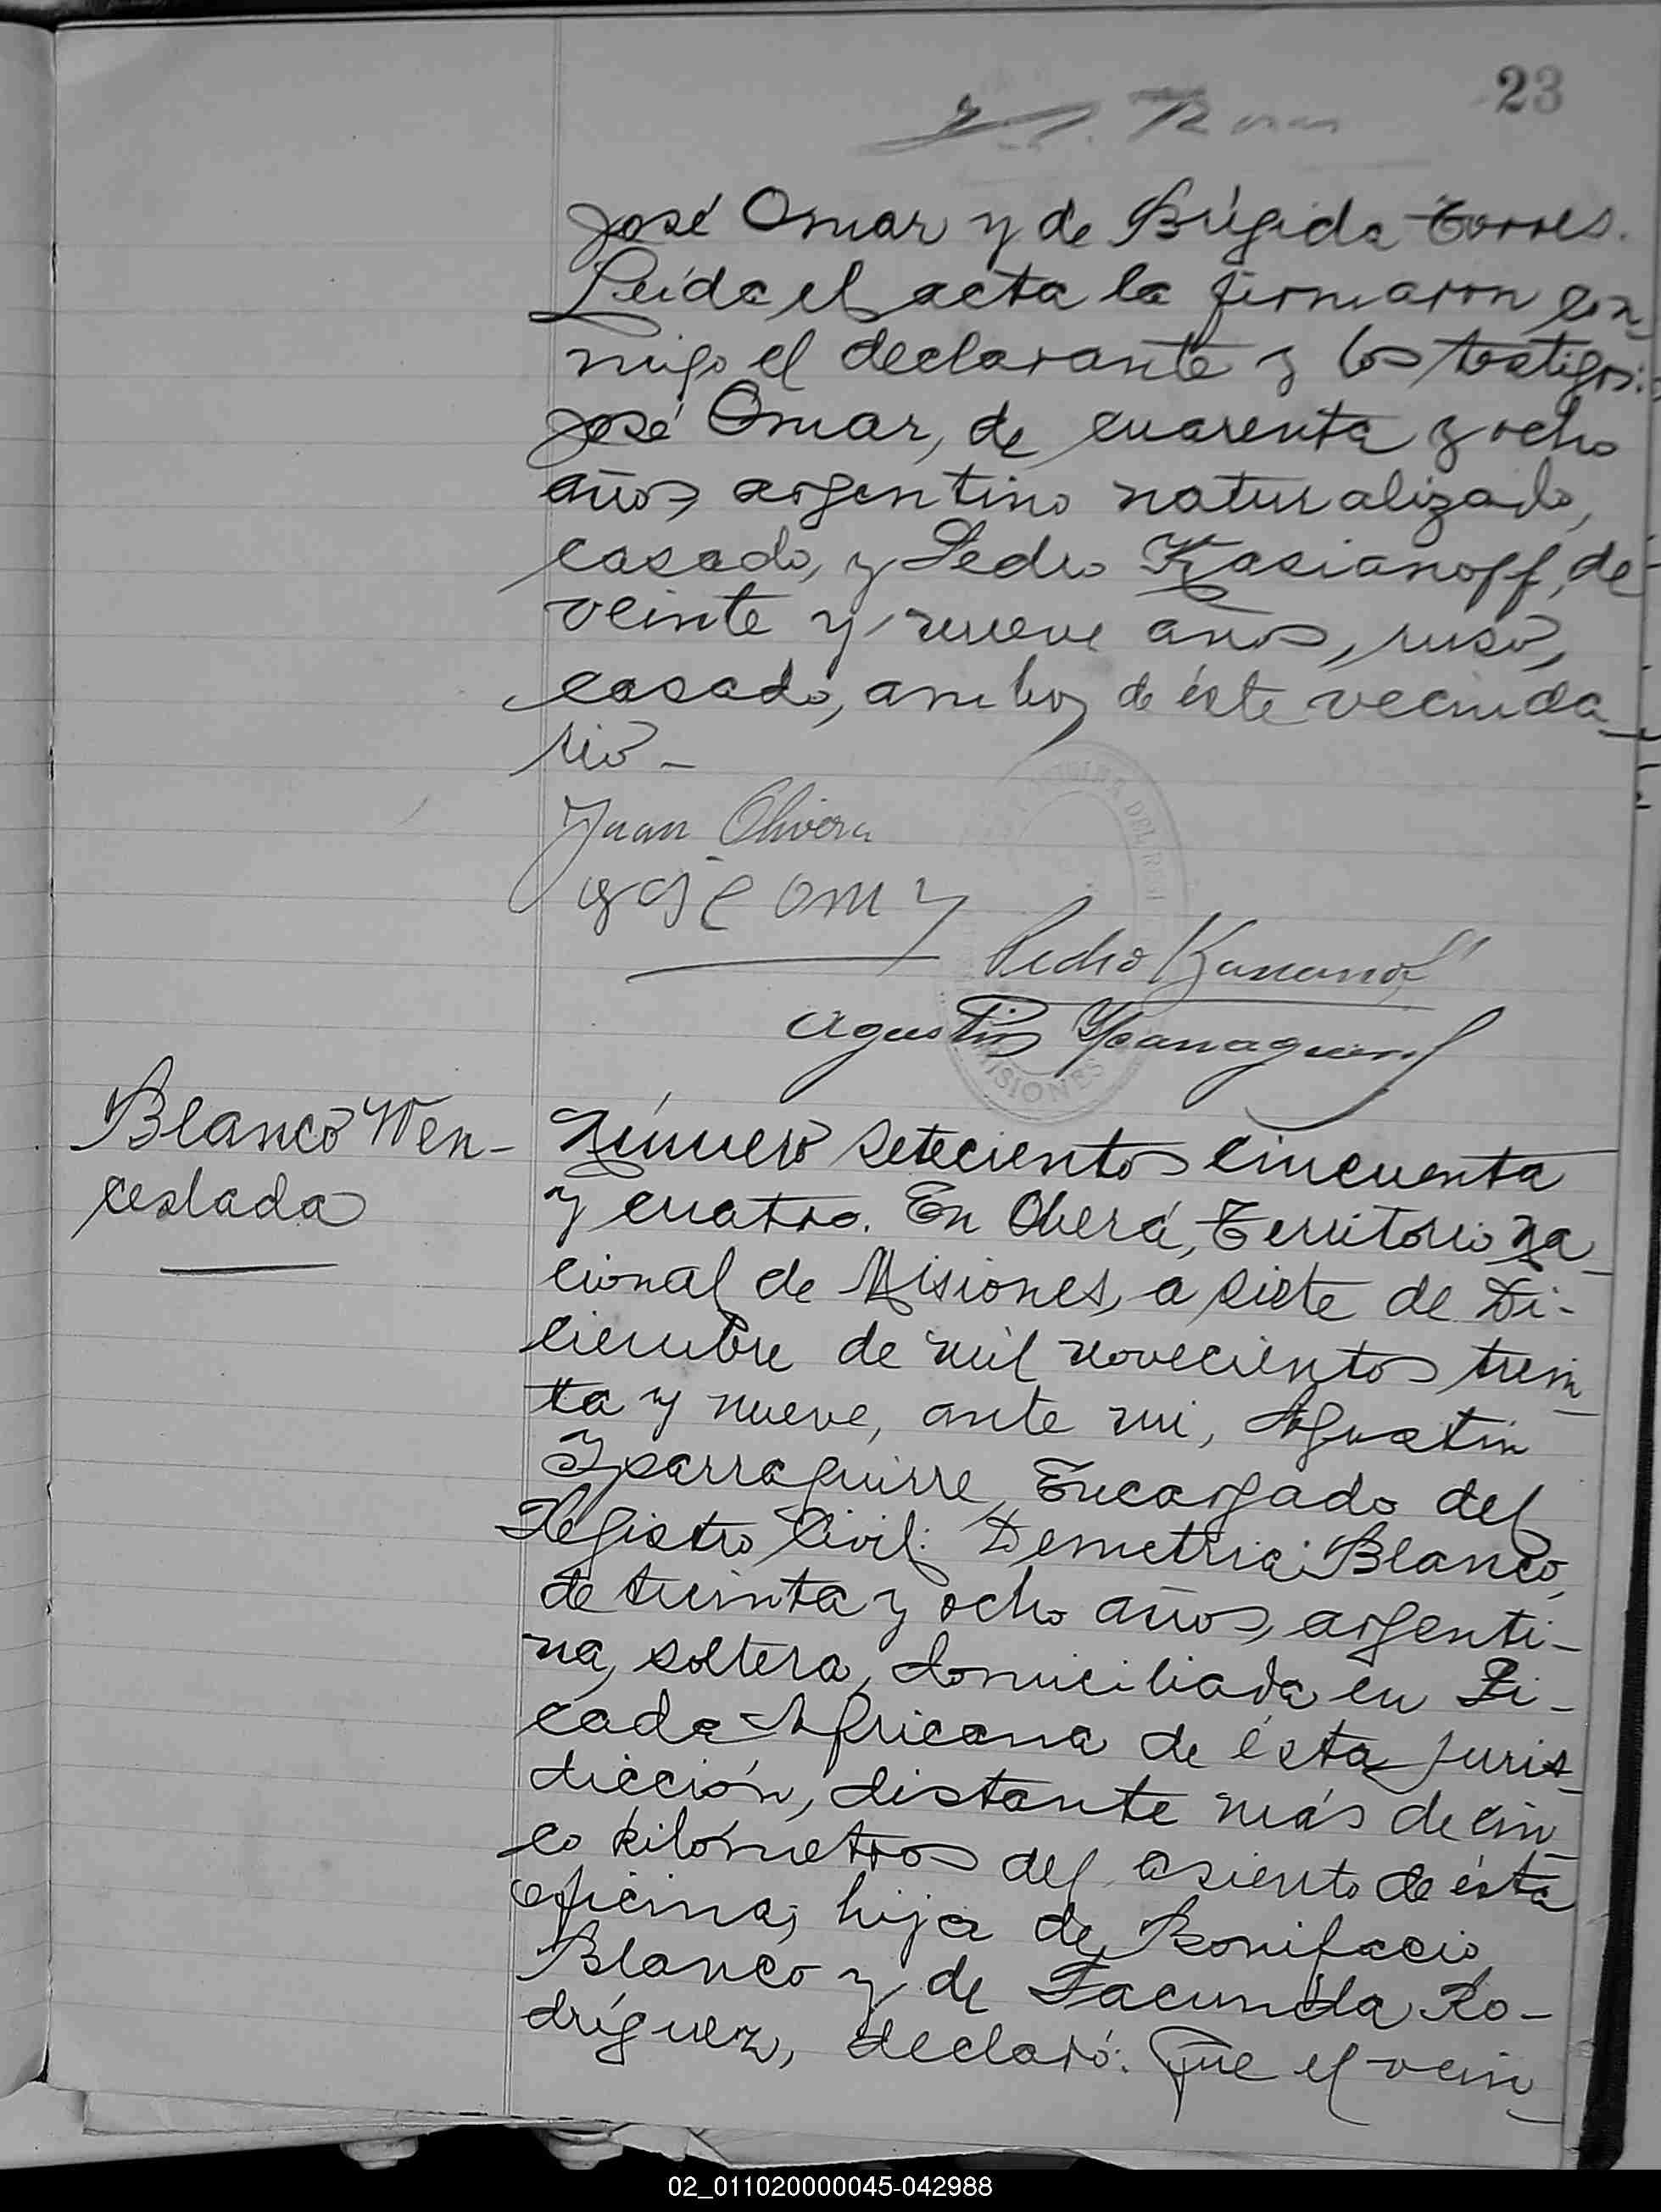 23
José Omar y de Brígida Torres.
Leída el acta la firmaron con
migo el declarante y los testigos:
José Omar, de cuarenta y ocho
años, argentino naturalizado,
casado, y Pedro Kasianoff, de
veinte y nueve años, ruso,
casado, ambos de éste vecinda_
rio_
Juan Olivera
José Omar
Pedro
Agustin Yparraguirre
MISIONES
Blanco Wen-
ceslada
Número setecientos cincuenta
y cuatro. En Oberá, Territorio Na_
cional de Misiones, a siete de Di-
ciembre de mil novecientos trein_
ta y nueve, ante mi, Agustin
Yparraguirre, Encargado del
Registro Civil: Demetria Blanco,
de treinta y ocho años, argenti_
na, soltera, domiciliada en Pi_
cada Africana de ésta juris_
dicción, distante más de cin_
co kilómetros del asiento de ésta
oficina; hija de Bonifacio
Blanco y de Facunda Ro-
dríguez, declaró: Que el vein_
02_011020000045-042988